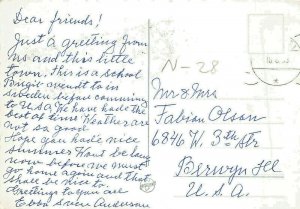 Dear friends!
Just a greeting from
us and this little
town. This is a school
Bengie wendt to in
sweden before comming
to U.S.A. We have hadd the
best of time. Weather are
not so good
Hope you hade nice
summer. Wont be long
now before we must
go home again and that
shall be nice to.
Greetings to you are
Ebba Sven Anderson
N-28
Mr & Mrs
Fabian Olson
6846 W. 3th Str
Berwyn Ill
U.S.A.